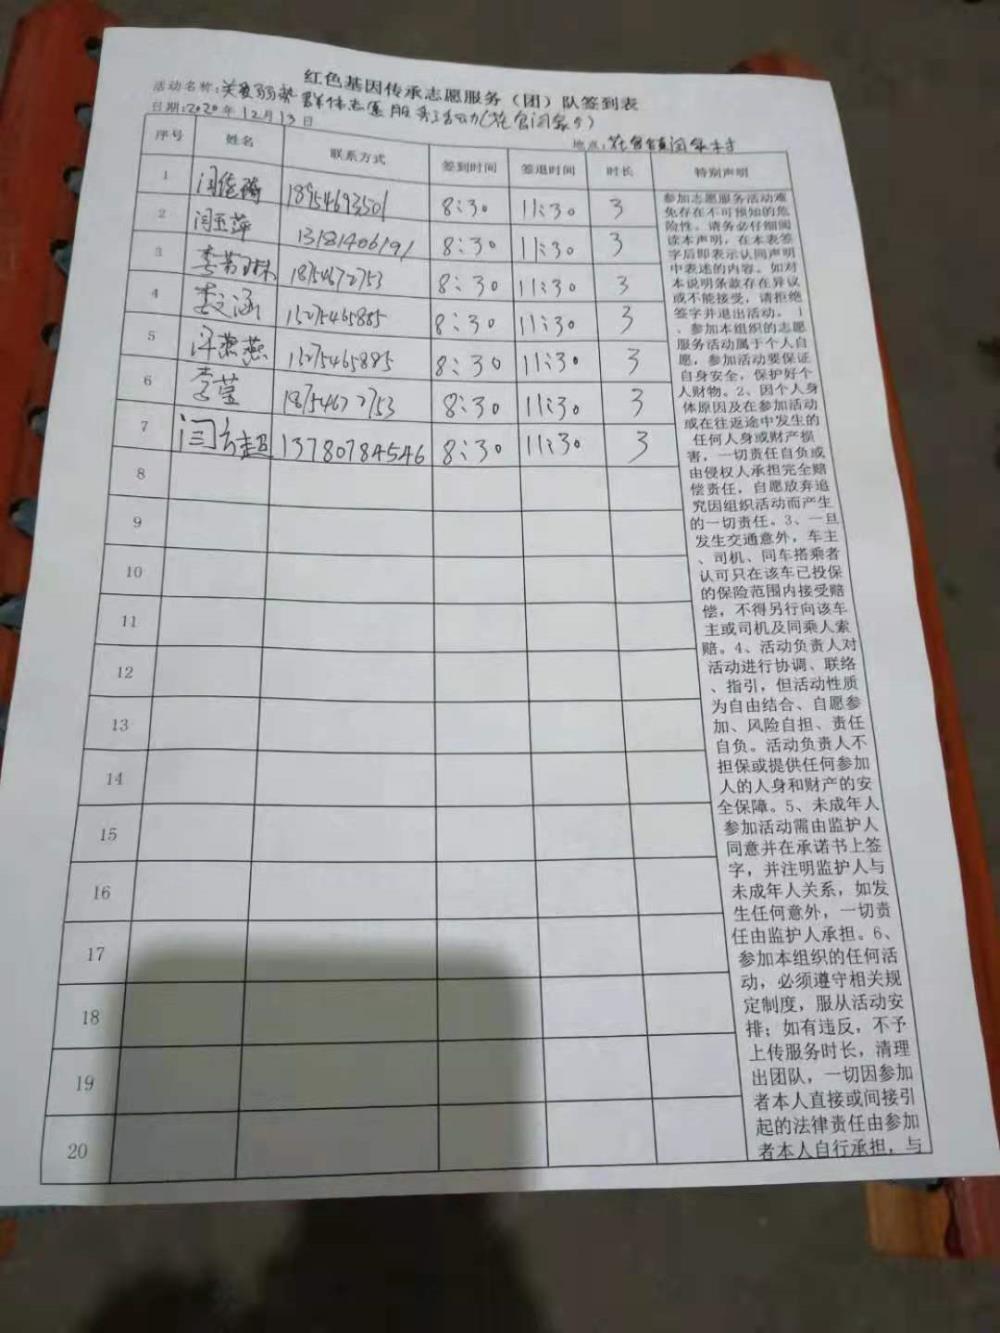 红色基因传承志愿服务（团）队签到表
活动名称：关爱弱势群体志愿服务活动（花官闫家分）
日期：2020年12月13日 地点：花官镇闫家村
序号 姓名 联系方式 签到时间 签退时间 时长 特别声明
1 闫 18954693501 8:30 11:30 3
2 闫玉萍 13181406191 8:30 11:30 3
3 李 18754672753 8:30 11:30 3
4 李文涵 15275465885 8:30 11:30 3
5 燕燕 15275465885 8:30 11:30 3
6 李莹 18754672753 8:30 11:30 3
7 闫方超 13780784546 8:30 11:30 3
8
9
10
11
12
13
14
15
16
17
18
19
20
参加志愿服务活动难
免存在不可预知的危
险性。请务必仔细阅
读本声明，在本表签
字后即表示认同声明
中表述的内容。如对
本说明条款存在异议
或不能接受，请拒绝
签字并退出活动。 1
、参加本组织的志愿
服务活动属于个人自
愿，参加活动要保证
自身安全，保护好个
人财物。2、因个人身
体原因及在参加活动
或在往返途中发生的
任何人身或财产损
害，一切责任自负或
由侵权人承担完全赔
偿责任，自愿放弃追
究因组织活动而产生
的一切责任。3、一旦
发生交通意外，车主
、司机、同车搭乘者
认可只在该车已投保
的保险范围内接受赔
偿，不得另行向该车
主或司机及同乘人索
赔。4、活动负责人对
活动进行协调、联络
、指引，但活动性质
为自由结合、自愿参
加、风险自担、责任
自负。活动负责人不
担保或提供任何参加
人的人身和财产的安
全保障。5、未成年人
参加活动需由监护人
同意并在承诺书上签
字，并注明监护人与
未成年人关系，如发
生任何意外，一切责
任由监护人承担。6、
参加本组织的任何活
动，必须遵守相关规
定制度，服从活动安
排；如有违反，不予
上传服务时长，清理
出团队，一切因参加
者本人直接或间接引
起的法律责任由参加
者本人自行承担，与